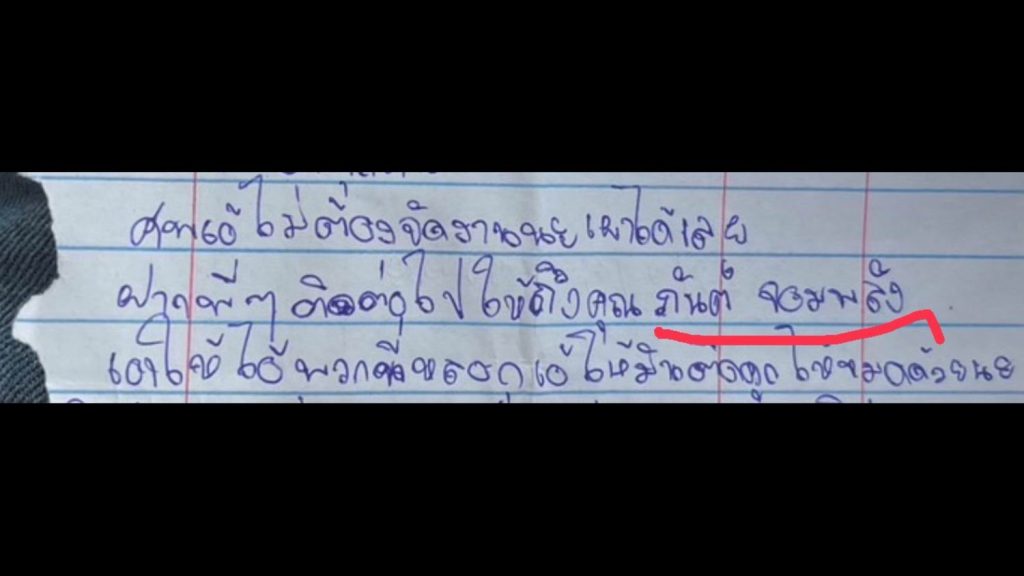 ศพเอ้ ไม่ต้องจัดงานนะ เผาได้เลย
ฝากพี่ๆ ติดต่อไปให้ถึงคุณ กันต์ จอมพลัง
เอาให้ไอ้พวกที่หลอกเอ้ ให้มันติดคุก ให้หมดด้วยนะ